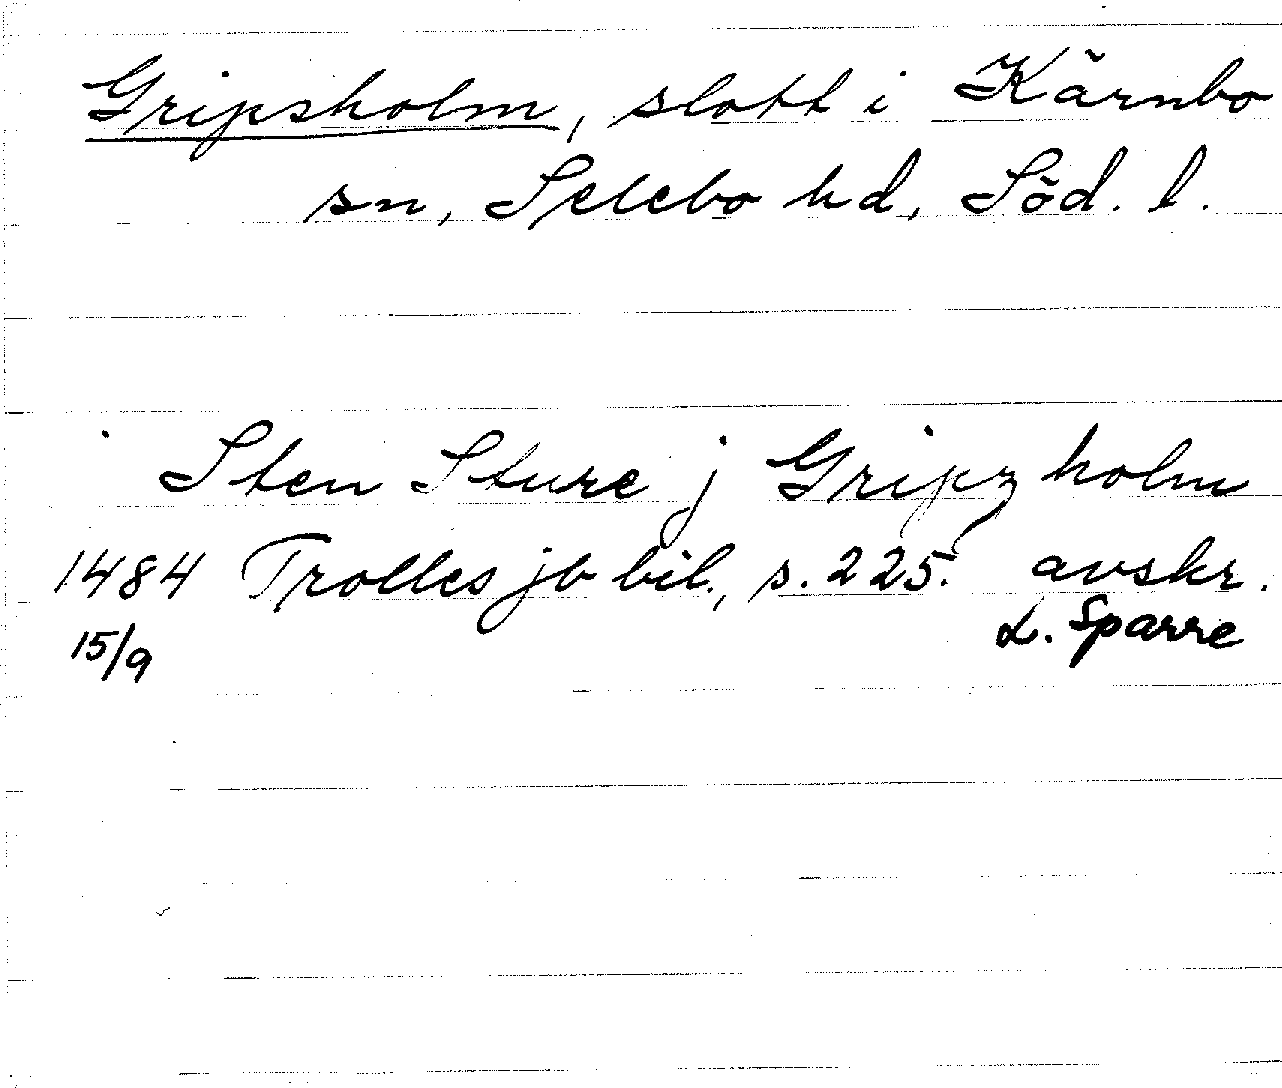 Gripsholm, slott i Kärnbo
sn, Selebo hd, Söd. l.
Sten Sture j Gripzholm
1484 Trolles jb bil., s. 225. avskr.
15/9 L. Sparre